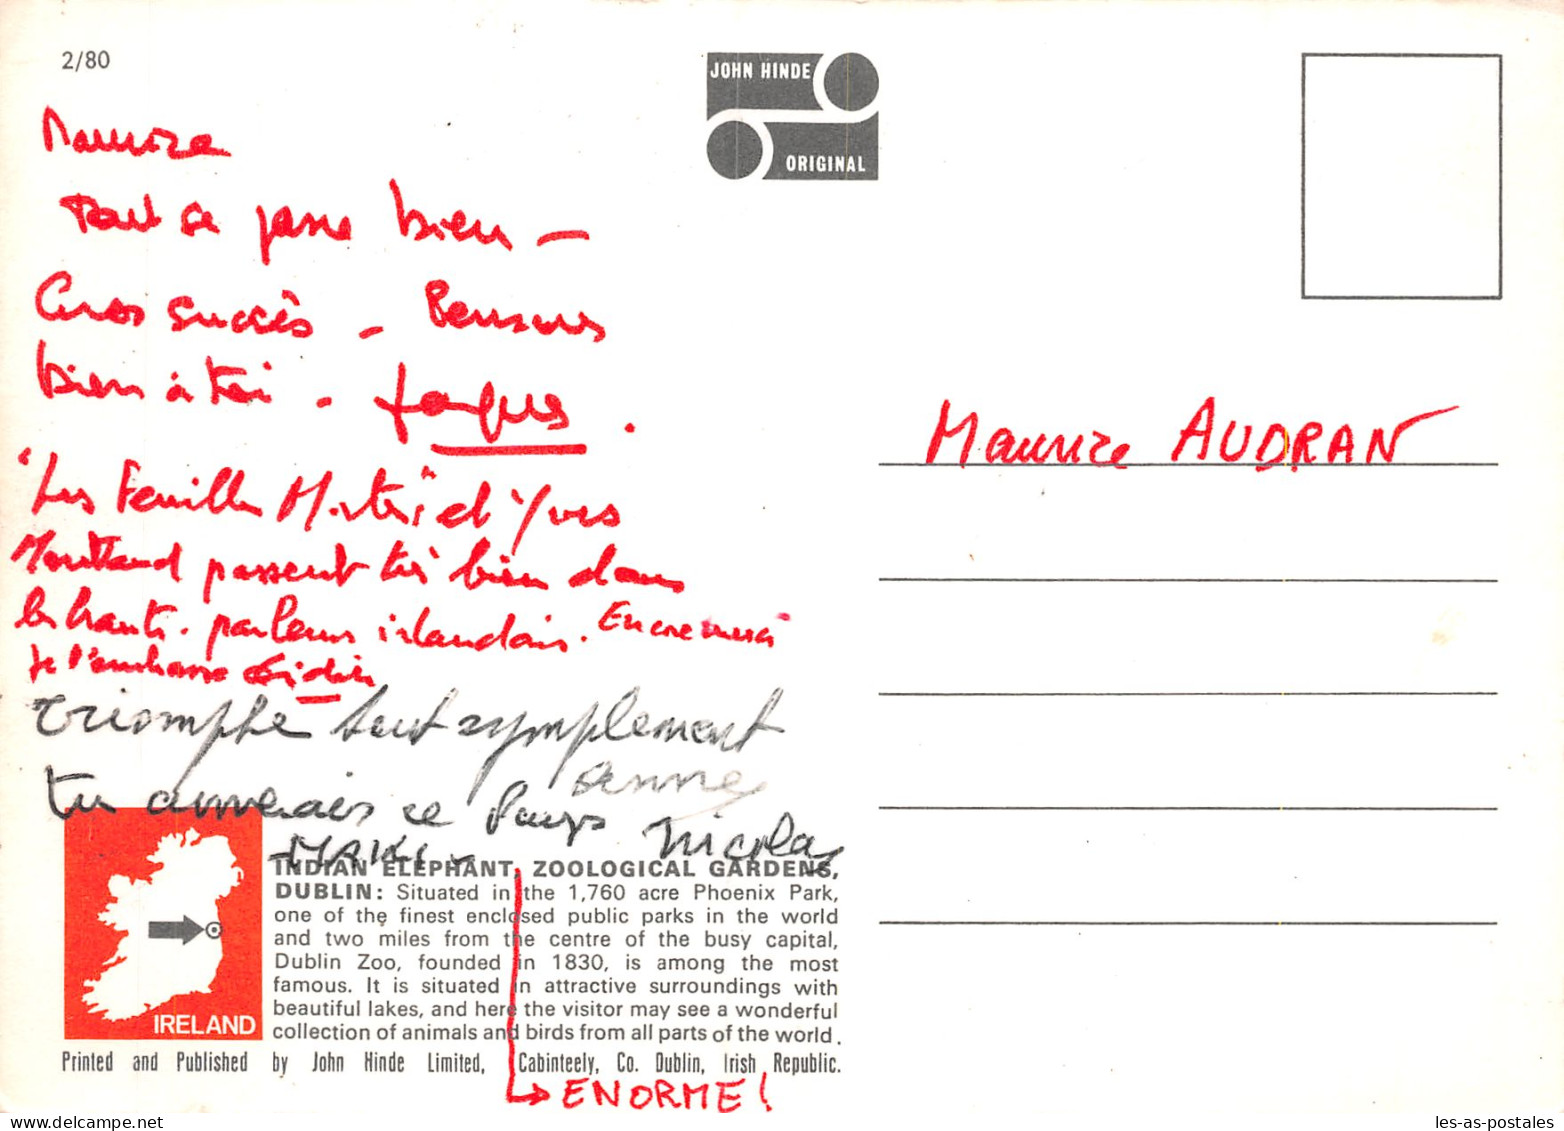 2/80
JOHN HINDE
ORIGINAL
Maurice
Tout se passe bien -
Gros succès - Pensons
bien à toi - Jacques.
"Les Feuilles Mortes" d'Yves
Montand passent très bien dans
les hauts-parleurs irlandais. Encore merci
je t'embrasse Didier
triomphe tout symplement
Anne
tu aimerais ce Pays Nicolas
-MAKI-
Maurice AUDRAN
INDIAN ELEPHANT, ZOOLOGICAL GARDENS,
DUBLIN: Situated in the 1,760 acre Phoenix Park,
one of the finest enclosed public parks in the world
and two miles from the centre of the busy capital,
Dublin Zoo, founded in 1830, is among the most
famous. It is situated in attractive surroundings with
beautiful lakes, and here the visitor may see a wonderful
collection of animals and birds from all parts of the world.
IRELAND
Printed and Published by John Hinde Limited, Cabinteely, Co. Dublin, Irish Republic.
→ ENORME!
les-as-postales